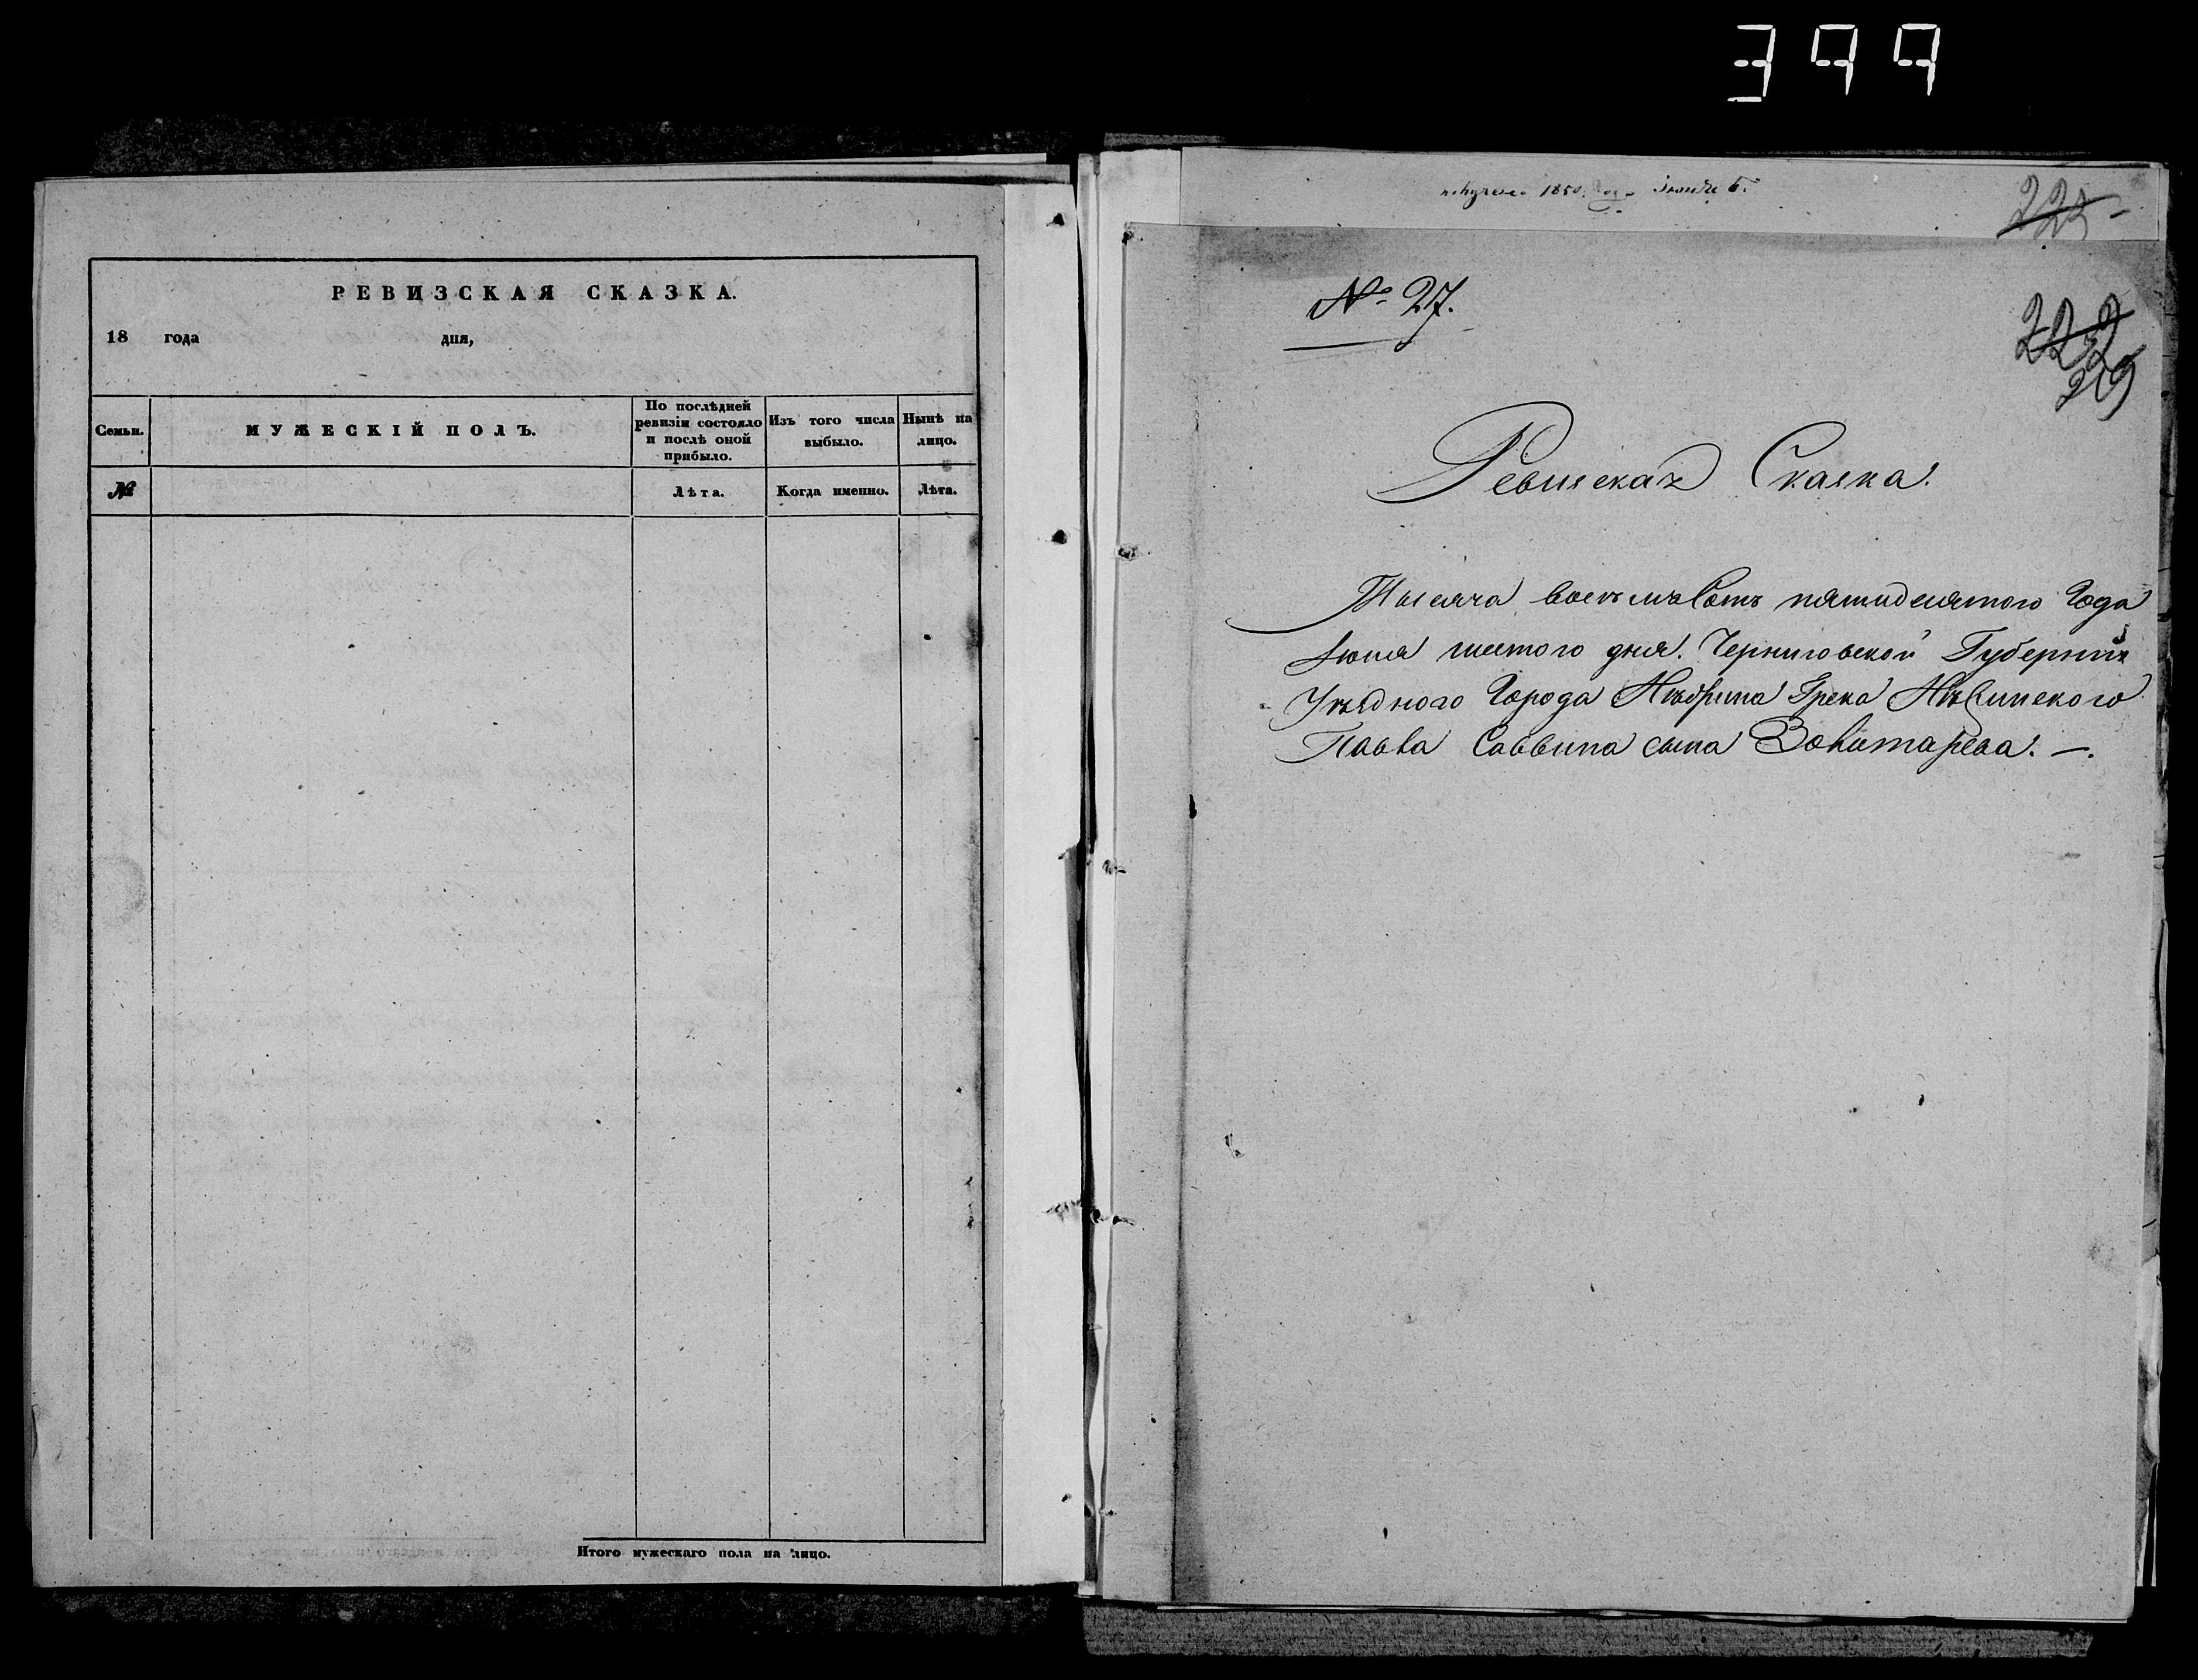 399
РЕВИЗСКАЯ СКАЗКА.
18 года дня,
Семьи.
МУЖЕСКІЙ ПОЛЪ.
По послѣдней ревизіи состояло и послѣ оной прибыло.
Изъ того числа выбыло.
Нынѣ на лицо.
№
Лѣта.
Когда именно.
Лѣта.
Итого мужескаго пола на лицо.
получено 1850 года
№ 27.
222
219
Ревизская Сказка.
Тысяча восемьсотъ пятидесятого Года
Іюня шестого дня. Черниговской Губерніи
Уѣзднаго Города Нѣжина Грека Нѣжинского
Павла Саввина сына